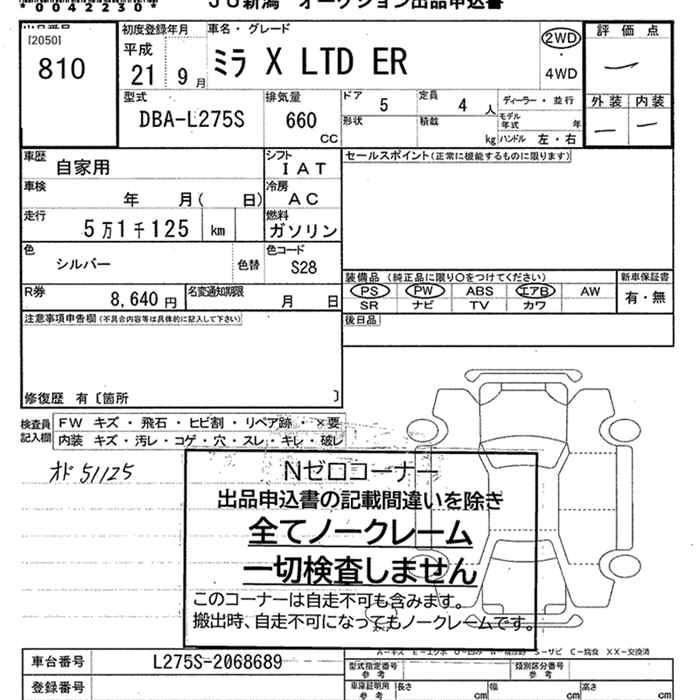 *0042230*
JU新潟 オークション出品申込書
出品番号 初度登録年月 車名・グレード 評価点
[2050]
810
平成 21 9月
ミラ X LTD ER
2WD
・
4WD
外装 内装
型式 排気量 ドア 定員 ディーラー・並行
DBA-L275S 660 CC 5 4人
形状 積載 kg モデル年式 年
ハンドル 左・右
車歴 自家用 シフト IAT
セールスポイント(正常に機能するものに限ります)
車検 年 月( 日) 冷房 AC
走行 5万1千125 km 燃料 ガソリン
色 シルバー 色替 色コード S28
装備品 (純正品に限り○をつけてください) 新車保証書
R券 8,640円 名変通知期限 月 日
PS PW ABS エアB AW 有・無
SR ナビ TV カワ
注意事項申告欄(不具合内容等は具体的に記入して下さい)
後日品
修復歴 有〔箇所 〕
検査員記入欄
FW キズ・飛石・ヒビ割・リペア跡・×要
内装 キズ・汚レ・コゲ・穴・スレ・キレ・破レ
オド 51125
Nゼロコーナー
出品申込書の記載間違いを除き
全てノークレーム
一切検査しません
このコーナーは自走不可も含みます。
搬出時、自走不可になってもノークレームです。
XX-交換済
車台番号 L275S-2068689
型式指定番号 参考 類別区分番号 参考
登録番号
車庫証明用 参考 長さ cm 幅 cm 高さ cm